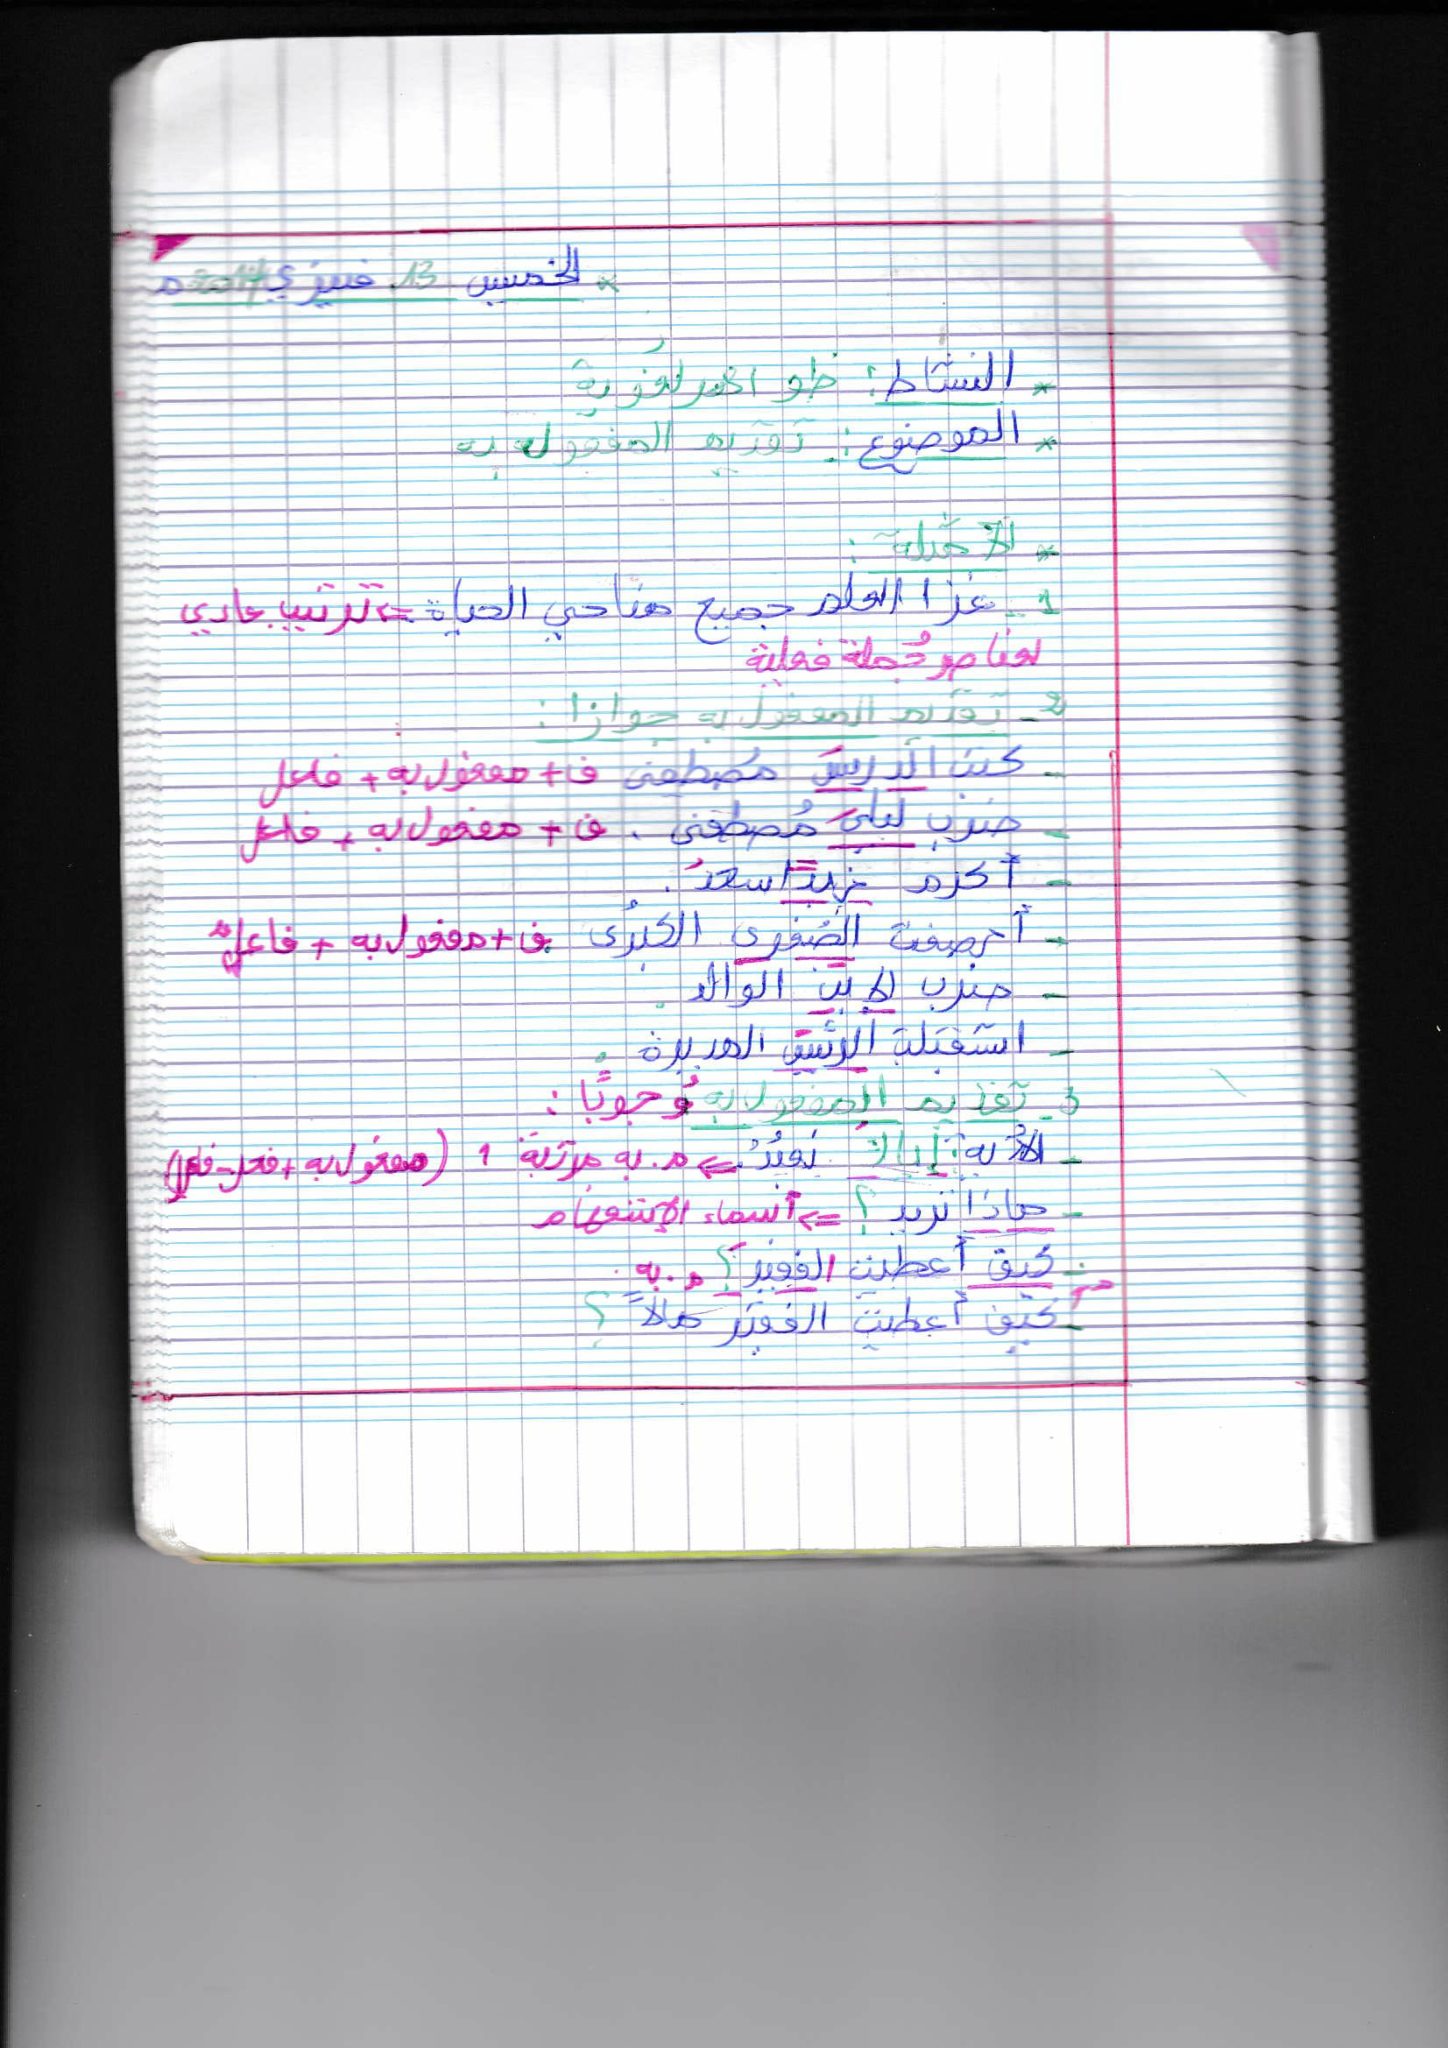 * الخميس 13 فيفري م
* النشاط: ظواهر لغوية
* الموضوع: تقديم المفعول به
* الأمثلة:
1 - غزا العلم جميع مناحي الحياة => ترتيب عادي
لعناصر جُملة فعلية
2 - تقديم المفعول به جوازا:
- كتب الدرسَ مصطفى ف + مفعول به + فاعل
- ضرب ليلى مُصطفى. ف + مفعول به + فاعل
- أكرم زيدًا سعدٌ.
- أرضعت الصُغرى الكبرُى ف + مفعول به + فاعل
- ضرب الابنَ الوالد.
- استقبلت الرئيسَ المديرة.
3 - تقديم المفعول به وُجوبًا:
- الآية: إياكَ نعبُدُ => م. به مرتبة 1 (مفعول به + فعل - فاعل)
- ماذا تريد؟ => أسماء الإستفهام
- كيف أعطيت الفقيرَ؟ م. به
- كيف أعطيت الفقير مالاً؟